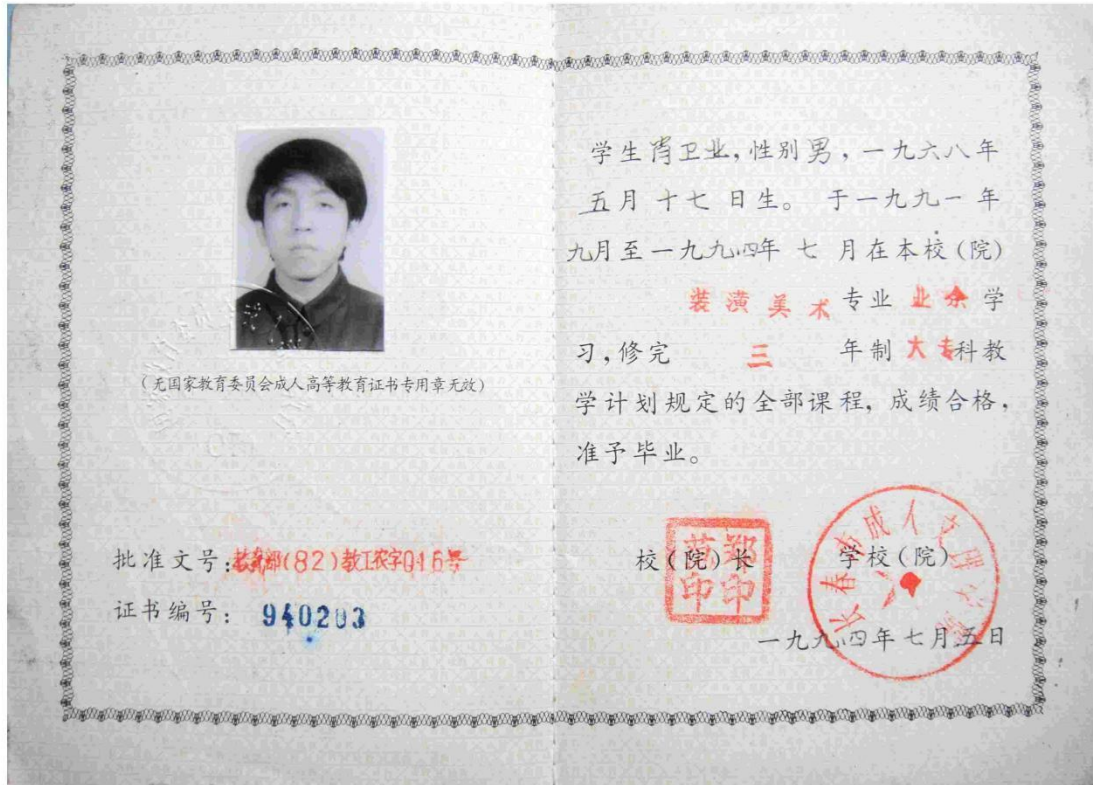 (无国家教育委员会成人高等教育证书专用章无效)
批准文号:教育部(82)教工农字016号
证书编号: 940203
学生肖卫业,性别男,一九六八年
五月十七日生。于一九九一年
九月至一九九四年七月在本校(院)
装潢美术专业业余学
习,修完 三 年制大专科教
学计划规定的全部课程,成绩合格,
准予毕业。
校(院)长
郑印
印
学校(院)
长春市成人文理学院
一九九四年七月五日